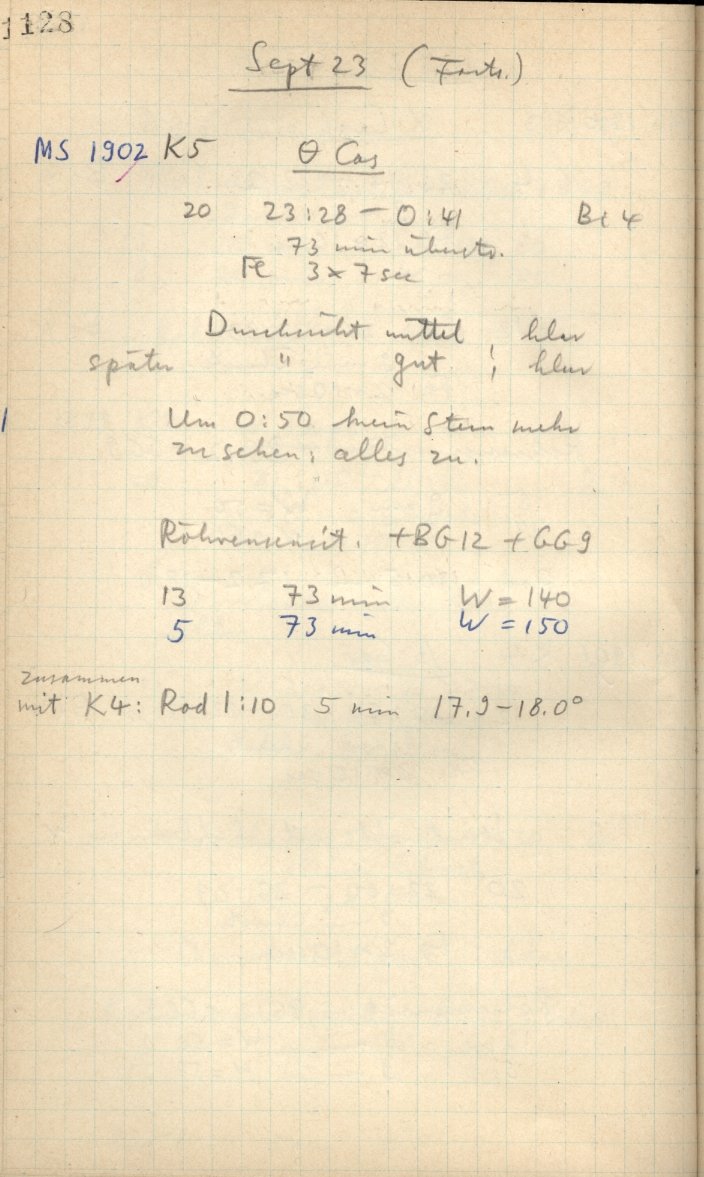 1128
Sept 23 (Forts.)
MS 1902 K5 θ Cas
20 23:28 – 0:41 B: 4
73 min überstr.
Fe 3 x 7 sec
Durchsicht mittel ; klar
später " gut ; klar
Um 0:50 kein Stern mehr
zu sehen, alles zu.
+BG12 +GG9
13 73 min W = 140
5 73 min W = 150
zusammen
mit K4: Rad 1:10 5 min 17.9–18.0°